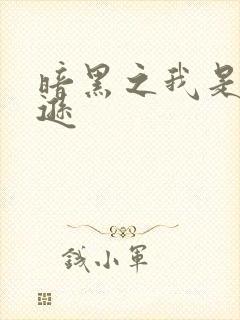 暗黑之我是
遜
钱小军